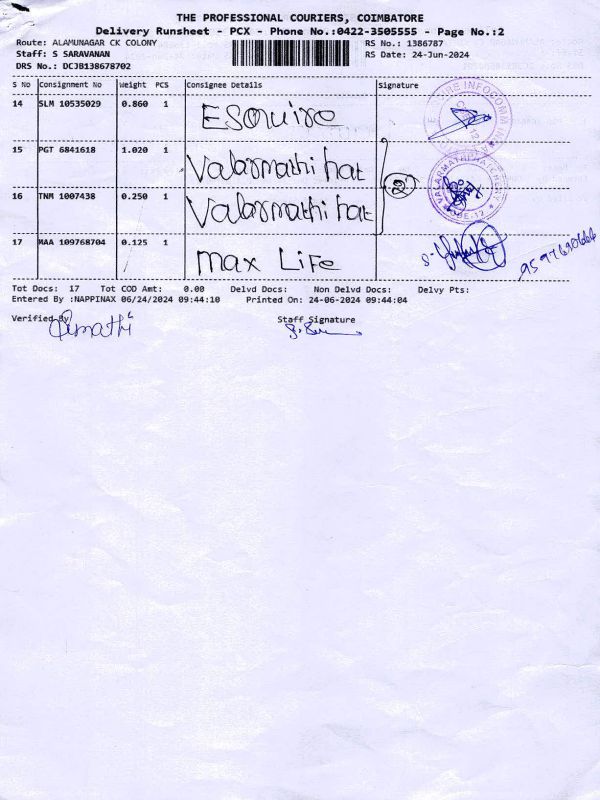 THE PROFESSIONAL COURIERS, COIMBATORE
Delivery Runsheet - PCX - Phone No.:0422-3505555 - Page No.:2
Route: ALAMUNAGAR CK COLONY RS No.: 1386787
Staff: S SARAVANAN RS Date: 24-Jun-2024
DRS No.: DCJB138678702
S No Consignment No Weight PCS Consignee Details Signature
14 SLM 10535029 0.860 1 Esquire
15 PGT 6841618 1.020 1 Valarmathi hat
16 TNM 1007438 0.250 1 Valarmathi hat
2
17 MAA 109768704 0.125 1 Max Life
Tot Docs: 17 Tot COD Amt: 0.00 Delvd Docs: Non Delvd Docs: Delvy Pts:
Entered By :NAPPINAX 06/24/2024 09:44:10 Printed On: 24-06-2024 09:44:04
Verified By Staff Signature